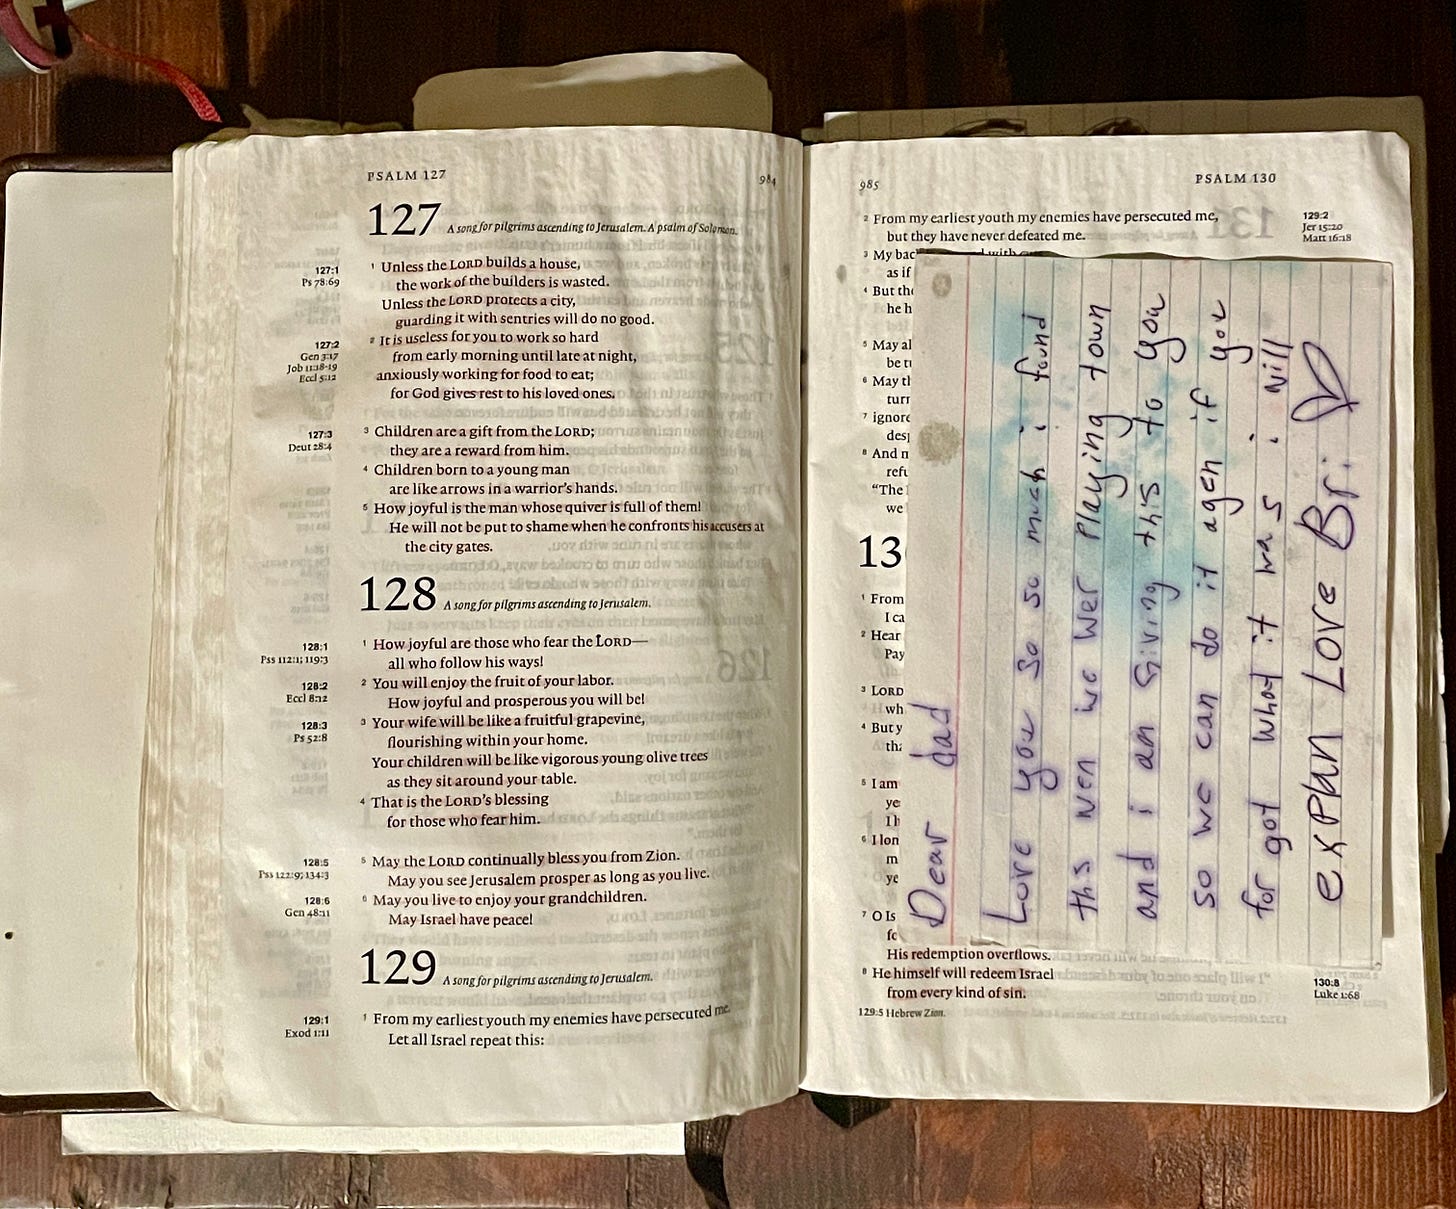 PSALM 127
984
127 A song for pilgrims ascending to Jerusalem. A psalm of Solomon.
127:1
Ps 78:69
1 Unless the LORD builds a house,
the work of the builders is wasted.
Unless the LORD protects a city,
guarding it with sentries will do no good.
127:2
Gen 3:17
Job 11:18-19
Eccl 5:12
2 It is useless for you to work so hard
from early morning until late at night,
anxiously working for food to eat;
for God gives rest to his loved ones.
127:3
Deut 28:4
3 Children are a gift from the LORD;
they are a reward from him.
4 Children born to a young man
are like arrows in a warrior's hands.
5 How joyful is the man whose quiver is full of them!
He will not be put to shame when he confronts his accusers at
the city gates.
128 A song for pilgrims ascending to Jerusalem.
128:1
Pss 112:1; 119:3
1 How joyful are those who fear the LORD—
all who follow his ways!
128:2
Eccl 8:12
2 You will enjoy the fruit of your labor.
How joyful and prosperous you will be!
128:3
Ps 52:8
3 Your wife will be like a fruitful grapevine,
flourishing within your home.
Your children will be like vigorous young olive trees
as they sit around your table.
4 That is the LORD's blessing
for those who fear him.
128:5
Pss 122:9; 134:3
5 May the LORD continually bless you from Zion.
May you see Jerusalem prosper as long as you live.
128:6
Gen 48:11
6 May you live to enjoy your grandchildren.
May Israel have peace!
129 A song for pilgrims ascending to Jerusalem.
129:1
Exod 1:11
1 From my earliest youth my enemies have persecuted me.
Let all Israel repeat this:
985
PSALM 130
2 From my earliest youth my enemies have persecuted me,
but they have never defeated me.
129:2
Jer 15:20
Matt 16:18
3 My
as if
4 But the
he h
5 May al
be
6 May
turn
7 ignore
8 And
"The
we
13
1 From
I ca
2 Hear
Pay
3 LORD
wh
4 But y
5 I am
I h
6 I lon
7 O Is
His redemption overflows.
8 He himself will redeem Israel
from every kind of sin.
130:8
Luke 1:68
129:5 Hebrew Zion.
Dear dad
Love you so so much i found
ths wen we wer playing town
and i am Giving this to you
so we can do it agen if you
for got what it was i will
explan Love Bri